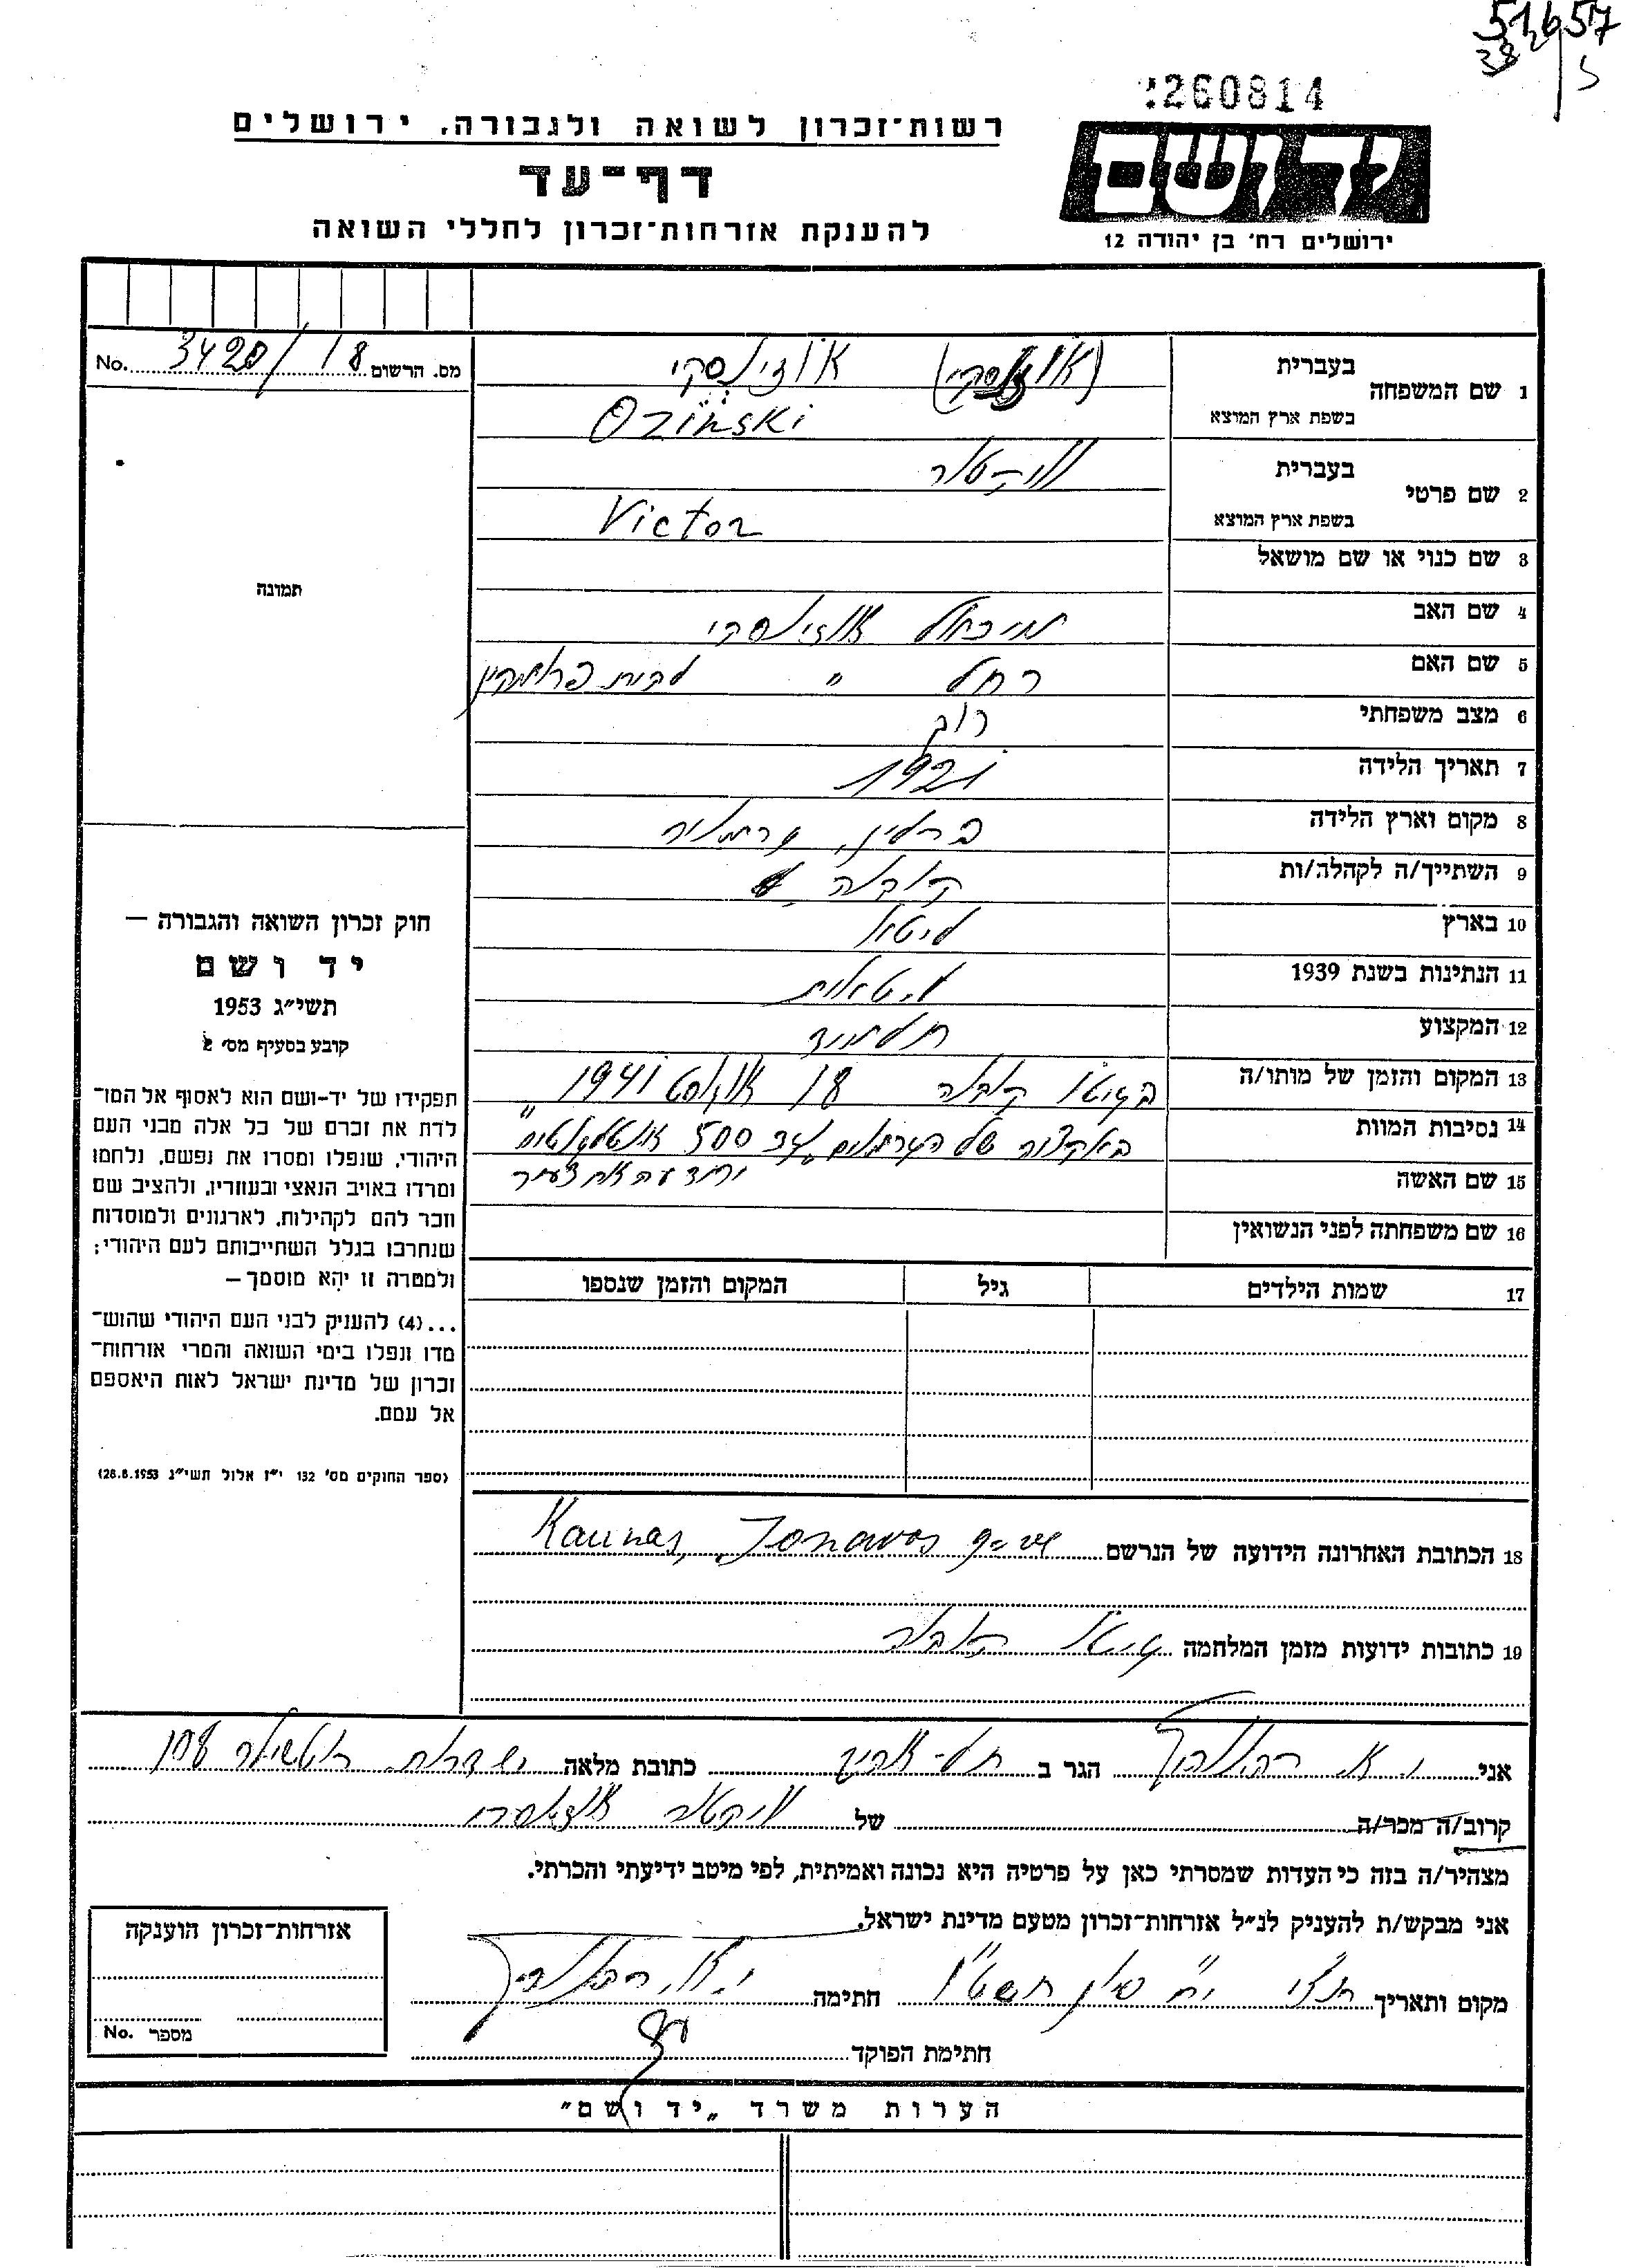 51657
38
260814
יד ושם
ירושלים רח' בן יהודה 12
רשות-זכרון לשואה ולגבורה, ירושלים
דף-עד
להענקת אזרחות-זכרון לחללי השואה
מס. הרשום 3420/18 No.
1 שם המשפחה
בעברית אוזינסקי
בשפת ארץ המוצא Ozinski
2 שם פרטי
בעברית ויקטור
בשפת ארץ המוצא Victor
3 שם כנוי או שם מושאל
4 שם האב מיכאל אוזינסקי
5 שם האם רחל " לבית פרומקין
6 מצב משפחתי רווק
7 תאריך הלידה 1921
8 מקום וארץ הלידה ברלין, גרמניה
9 השתייך/ה לקהלה/ות קובנה
10 בארץ ליטא
11 הנתינות בשנת 1939 ליטאית
12 המקצוע תלמיד
13 המקום והזמן של מותו/ה בגיטו קובנה 18 אוגוסט 1941
14 נסיבות המוות באקציה של הגרמנים נגד 500 אינטלקטואלים
15 שם האשה
16 שם משפחתה לפני הנשואין
17 שמות הילדים גיל המקום והזמן שנספו
תמונה
חוק זכרון השואה והגבורה —
יד ושם
תשי"ג 1953
קובע בסעיף מס' 2
תפקידו של יד-ושם הוא לאסוף אל המו־
לדת את זכרם של כל אלה מבני העם
היהודי, שנפלו ומסרו את נפשם, נלחמו
ומרדו באויב הנאצי ובעוזריו, ולהציב שם
וזכר להם לקהילות, לארגונים ולמוסדות
שנחרבו בגלל השתייכותם לעם היהודי;
ולמטרה זו יהא מוסמך—
...(4) להעניק לבני העם היהודי שהוש־
מדו ונפלו בימי השואה והמרי אזרחות־
זכרון של מדינת ישראל לאות היאספם
אל עמם.
(ספר החוקים מס' 132 י"ז אלול תשי"ג 28.8.1953)
18 הכתובת האחרונה הידועה של הנרשם Kaunas, Jonavos
19 כתובות ידועות מזמן המלחמה גיטו קובנה
אני הגר ב תל-אביב כתובת מלאה שדרות רוטשילד 108
קרוב/ה מכר/ה של ויקטור אוזינסקי
מצהיר/ה בזה כי העדות שמסרתי כאן על פרטיה היא נכונה ואמיתית, לפי מיטב ידיעתי והכרתי.
אני מבקש/ת להעניק לנ"ל אזרחות-זכרון מטעם מדינת ישראל.
מקום ותאריך י"ח סיון תשט"ו חתימה
חתימת הפוקד
אזרחות-זכרון הוענקה
מספר No.
הערות משרד "יד ושם"